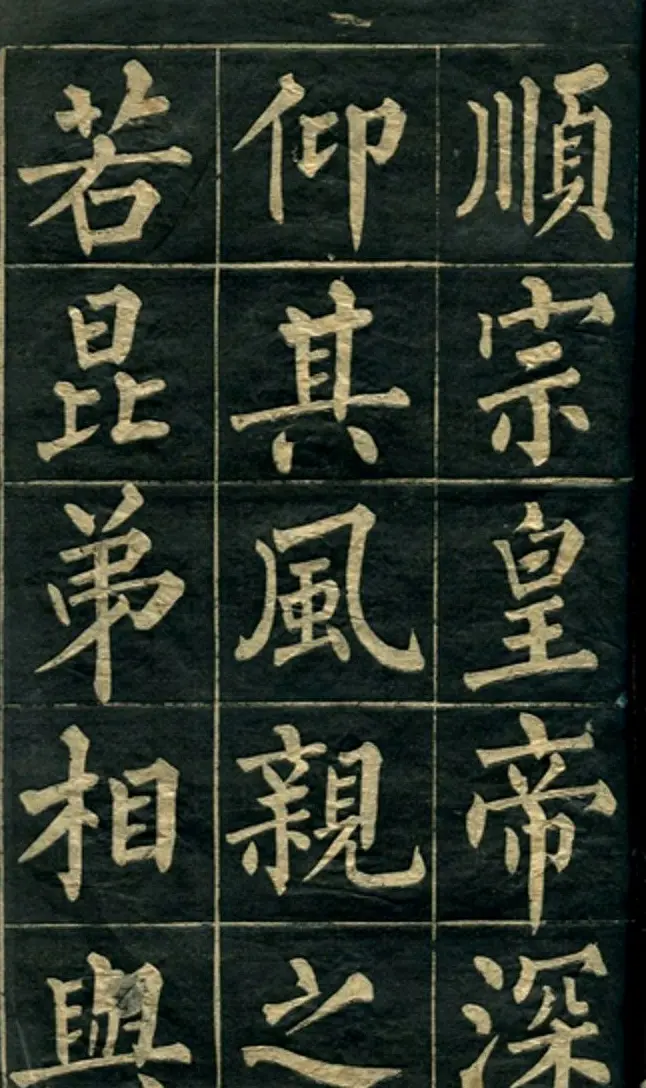 順宗皇帝深
仰其風親之
若昆弟相與